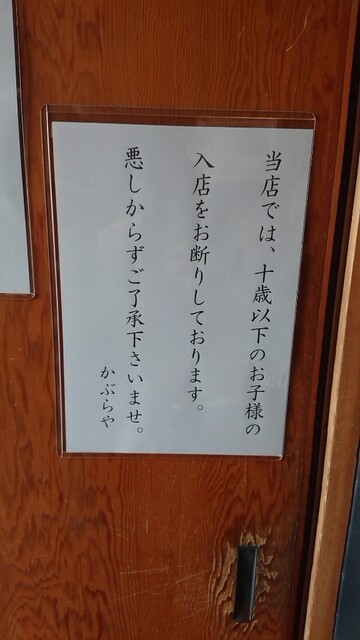 当店では、十歳以下のお子様の
入店をお断りしております。
悪しからずご了承下さいませ。
かぶらや